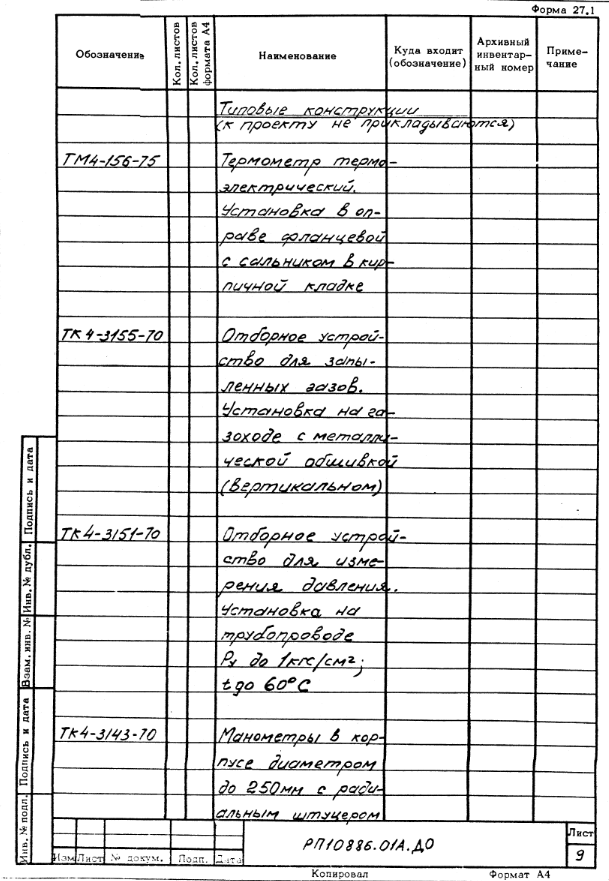 Форма 27.1
Обозначение
Кол. листов
Кол. листов формата А4
Наименование
Куда входит (обозначение)
Архивный инвентарный номер
Примечание
Типовые конструкции
(к проекту не прикладываются)
ТМ4-156-75 Термометр термо-
электрический.
Установка в оп-
раве фланцевой
с сальником в кир-
пичной кладке
ТК4-3155-70 Отборное устрой-
ство для запы-
ленных газов.
Установка на га-
зоходе с металли-
ческой обшивкой
(вертикальном)
ТК4-3151-70 Отборное устрой-
ство для изме-
рения давления.
Установка на
трубопроводе
Ру до 1кгс/см²;
t до 60°С
ТК4-3143-70 Манометры в кор-
пусе диаметром
до 250мм с ради-
альным штуцером
Подпись и дата
Инв. № дубл.
Взам. инв. №
Подпись и дата
Инв. № подл.
Изм Лист № докум. Подп. Дата
РП10886.01А.ДО
Лист
9
Копировал Формат А4